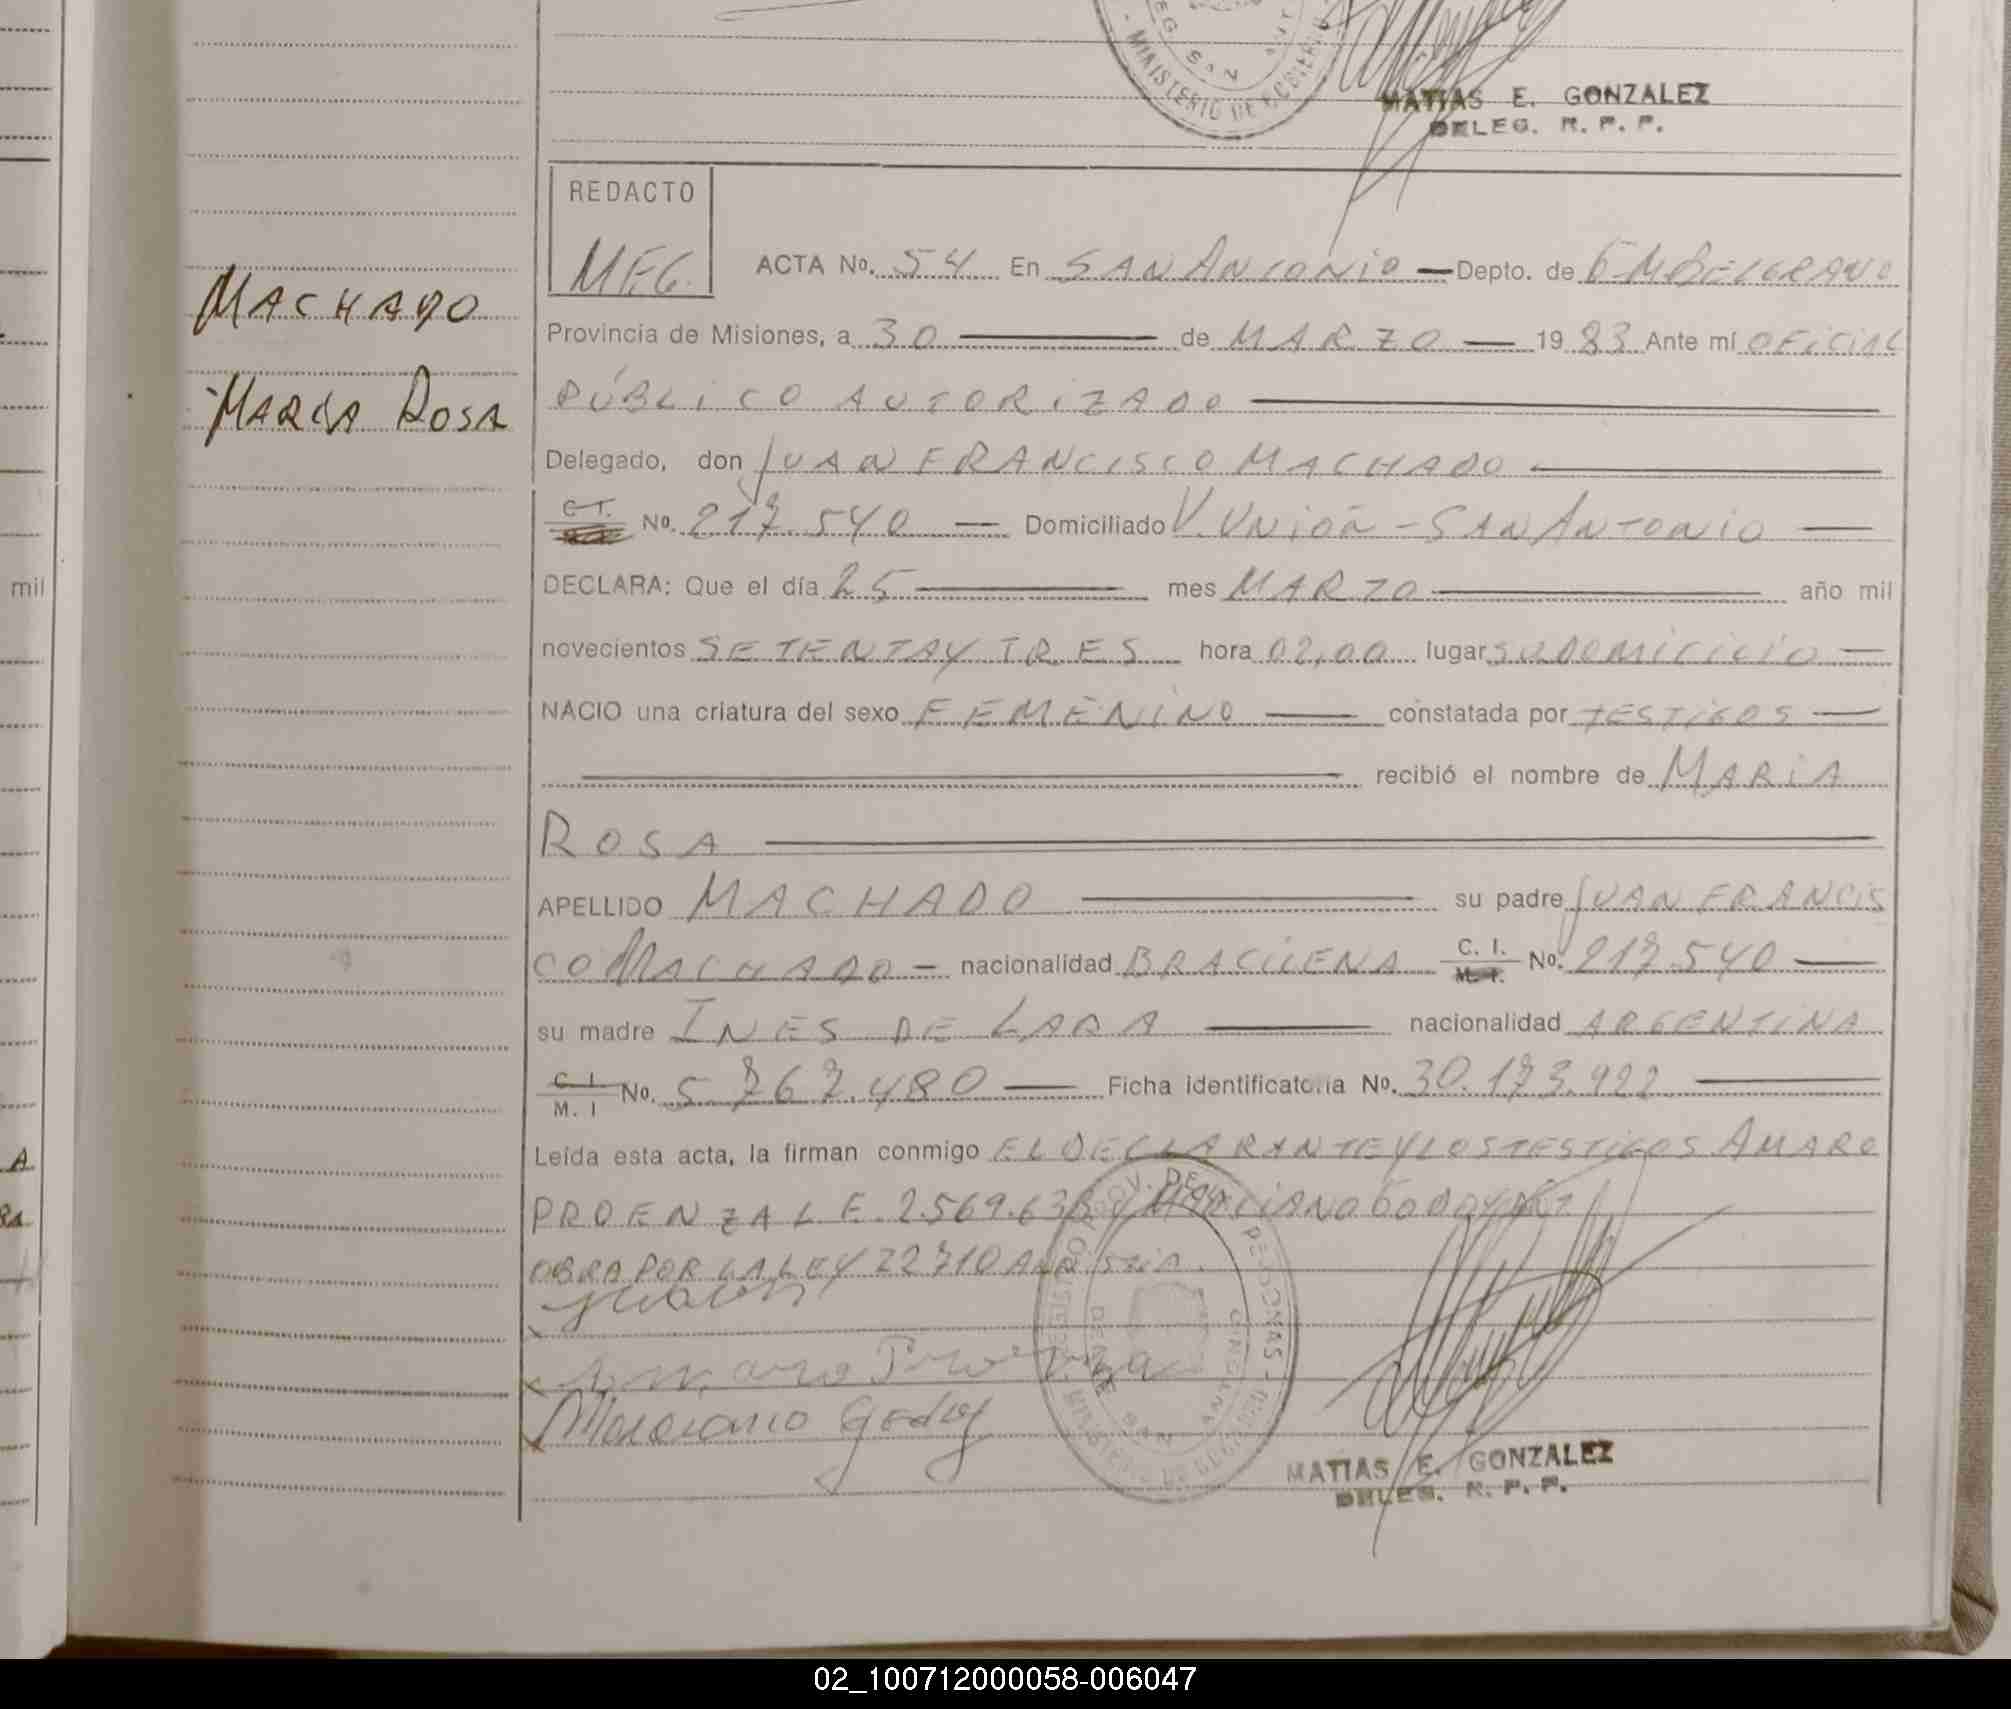 MINISTERIO DE GOBIERNO
SAN ANT
MATIAS E. GONZALEZ
DELEG. R. P. P.
REDACTO
M.E.G.
ACTA No. 54 En SAN ANTONIO — Depto. de G M BELGRANO
MACHADO
Provincia de Misiones, a 30 — de MARZO — 1983 Ante mí OFICIAL
PÚBLICO AUTORIZADO —
MARIA ROSA
Delegado, don JUAN FRANCISCO MACHADO —
C. I. No. 217.540 — Domiciliado V. UNIÓN - SAN ANTONIO —
DECLARA: Que el día 25 — mes MARZO — año mil
mil
novecientos SETENTA Y TRES hora 02,00 lugar SU DOMICILIO —
NACIO una criatura del sexo FEMENINO — constatada por TESTIGOS —
— recibió el nombre de MARIA
ROSA —
APELLIDO MACHADO — su padre JUAN FRANCIS
CO MACHADO — nacionalidad BRACILENA C. I. M. I. No. 217.540 —
su madre INES DE LARA — nacionalidad ARGENTINA
C. I. M. I No. 5.767.480 — Ficha identificatoria No. 30.173.922 —
Leída esta acta, la firman conmigo EL DECLARANTE Y LOS TESTIGOS AMARO
A
PROENZA L E. 2.569.638 Y MARCIANO GODOY
RA
OBRA POR LA LEY 22710 AMNISTIA.
Amaro Proenza
Marciano Godoy
REGISTRO PROV. DE LAS PERSONAS - MINISTERIO DE GOBIERNO
SAN ANTONIO
MATIAS E. GONZALEZ
DELEG. R. P. P.
02_100712000058-006047